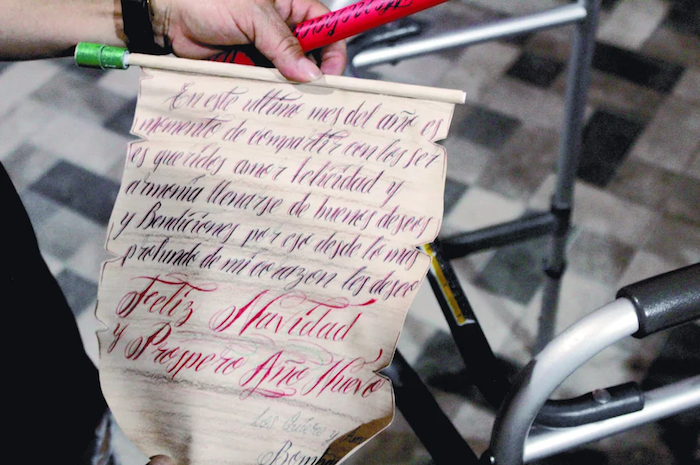 En este ultimo mes del año es
momento de compartir con los ser
es queridos amor felicidad y
armonía llenarse de buenos deseos
y Bendiciones por eso desde lo mas
profundo de mi corazon les deseo
Feliz Navidad
y Prospero Año Nuevo
Los